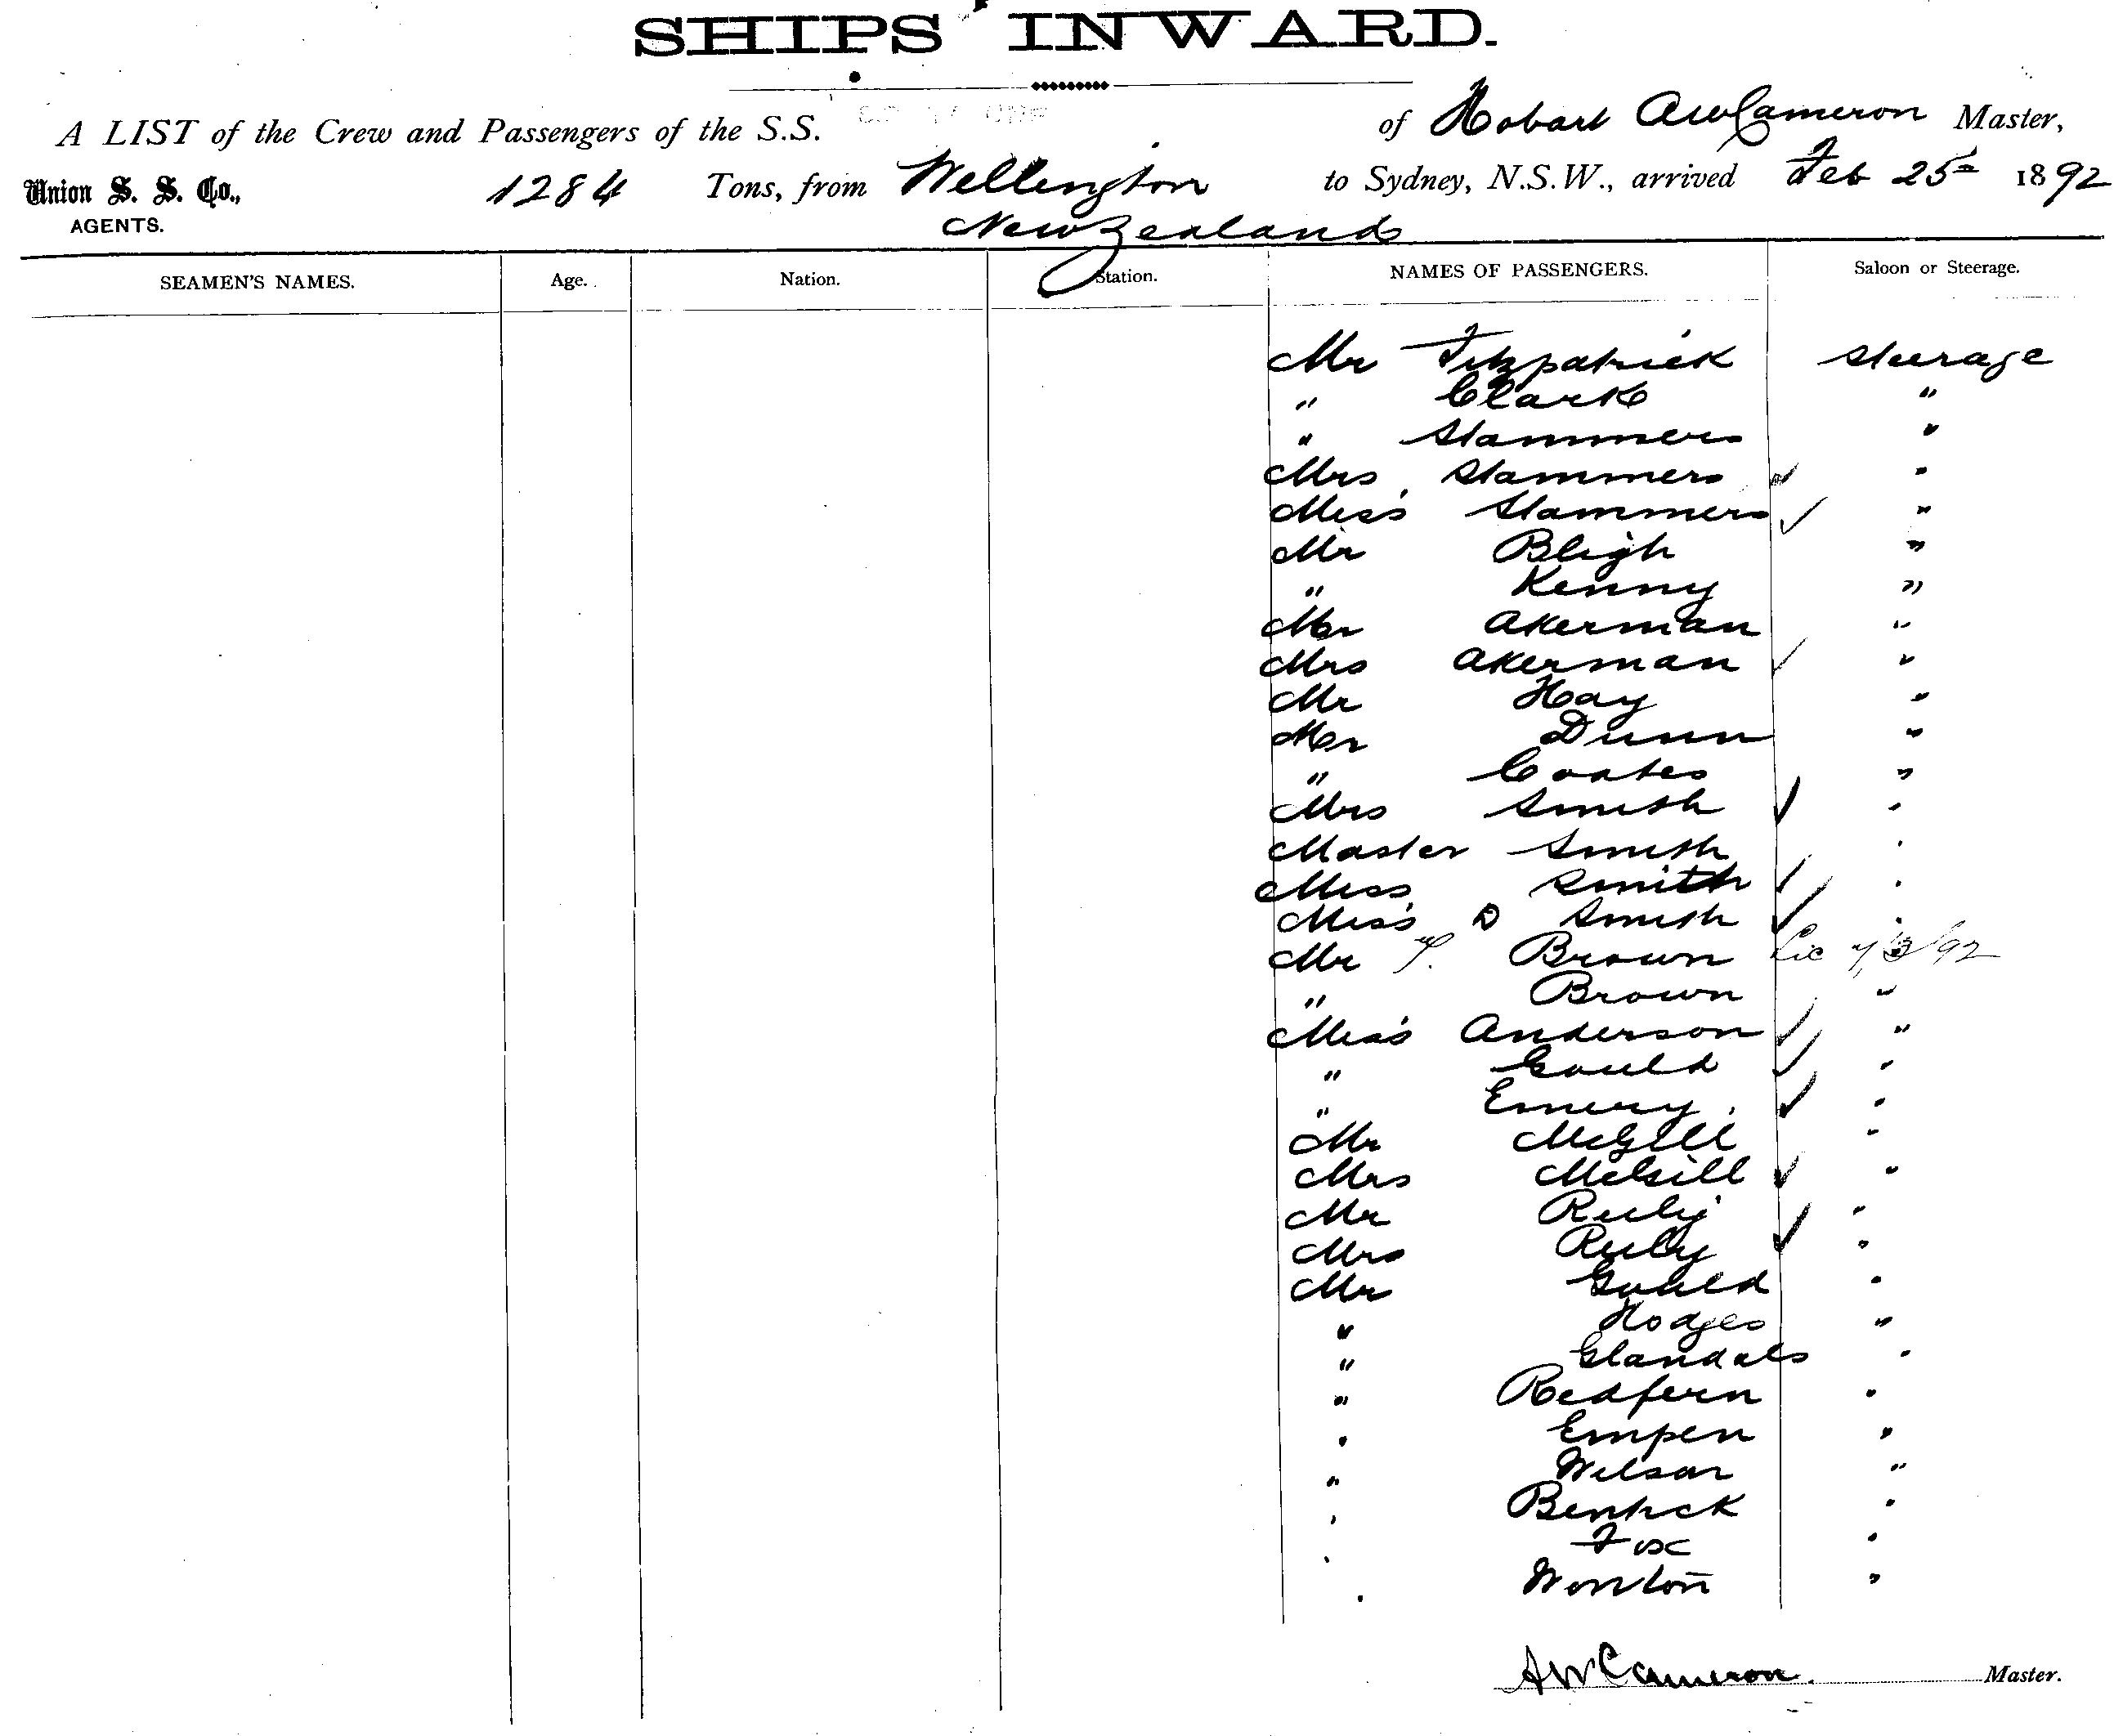 SHIPS INWARD.
A LIST of the Crew and Passengers of the S.S. of Hobart AWCameron Master,
Union S. S. Co., 1284 Tons, from Wellington to Sydney, N.S.W., arrived Feb 25th 1892
AGENTS. New Zealand
SEAMEN'S NAMES. Age. Nation. Station. NAMES OF PASSENGERS. Saloon or Steerage.
Mr Fitzpatrick Steerage
" Clark "
" Stammers "
Mrs Stammers ✓ "
Miss Stammers ✓ "
Mr Bligh "
" Kenny "
Mr Akerman "
Mrs Akerman ✓ "
Mr Hay "
Mr Dunn "
" Coates "
Mrs Smith ✓ "
Master Smith "
Miss Smith ✓ "
Miss D Smith ✓ "
Mr Brown /92
" Brown "
Miss Anderson ✓ "
" Gould ✓ "
" Emery ✓ "
Mr McGill "
Mrs McGill ✓ "
Mr Ruby "
Mrs Ruby ✓ "
Mr Gould "
" Hodges "
" Glandals "
" Redfern "
" Empen "
" Wilson "
" Bentick "
" Fox "
" Wonton "
AWCameron. Master.